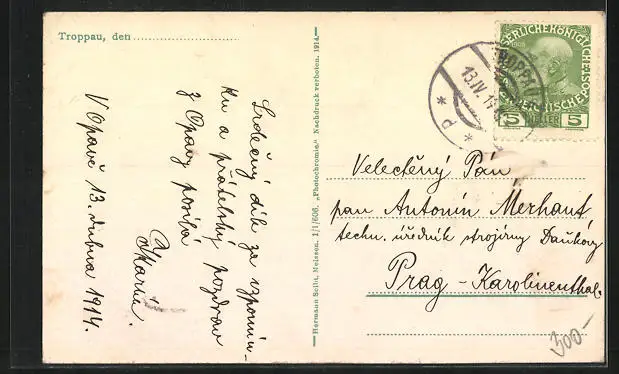 Troppau, den
V Opavě 13. dubna 1914.
Srdečný dík za vzpomín-
ku a přátelský pozdrav
z Opavy posílá
Marie.
Hermann Seibt, Meissen. 1/1/606. „Photochromie.“ Nachdruck verboten. 1914.
TROPPAU
13.IV.14
* P *
KAISERLICHE KÖNIGLICHE ÖSTERREICHISCHE POST
1908
5 HELLER 5
Velectěný Pán
pan Antonín Merhaut,
techn. úředník strojírny Daňkovy
Prag - Karolinenthal.
300.-